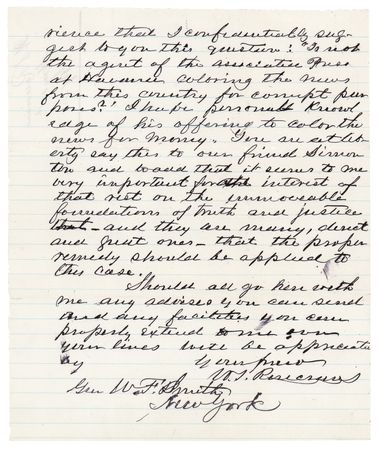 rience that I confidentially sug-
gest to you this question: "Is not
the agent of the associated Press
at Havana coloring the news
from this country for corrupt pur
poses?" I have personal knowl
edge of his offering to color the
news for money. You are at lib-
erty say this to our friend Simon
ton and to add that it seems to me
very important for the interest of
that rest on the immoveable
foundations of truth and justice
that - and they are many, direct
and great ones - that the proper
remedy should be applied to
this case.
Should all go here with
me any advises you can send
and any facilities you can
properly extend to me
your lines will be appreciate
by Your friend
W. S. Rosecrans
Gen W. F. Smith
New York